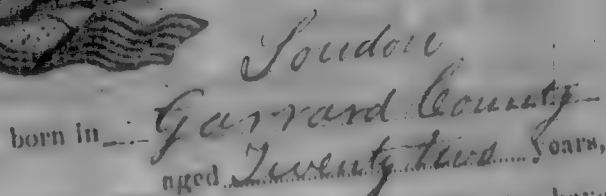 Loudon
born in Garrard County
aged Twenty two Years,